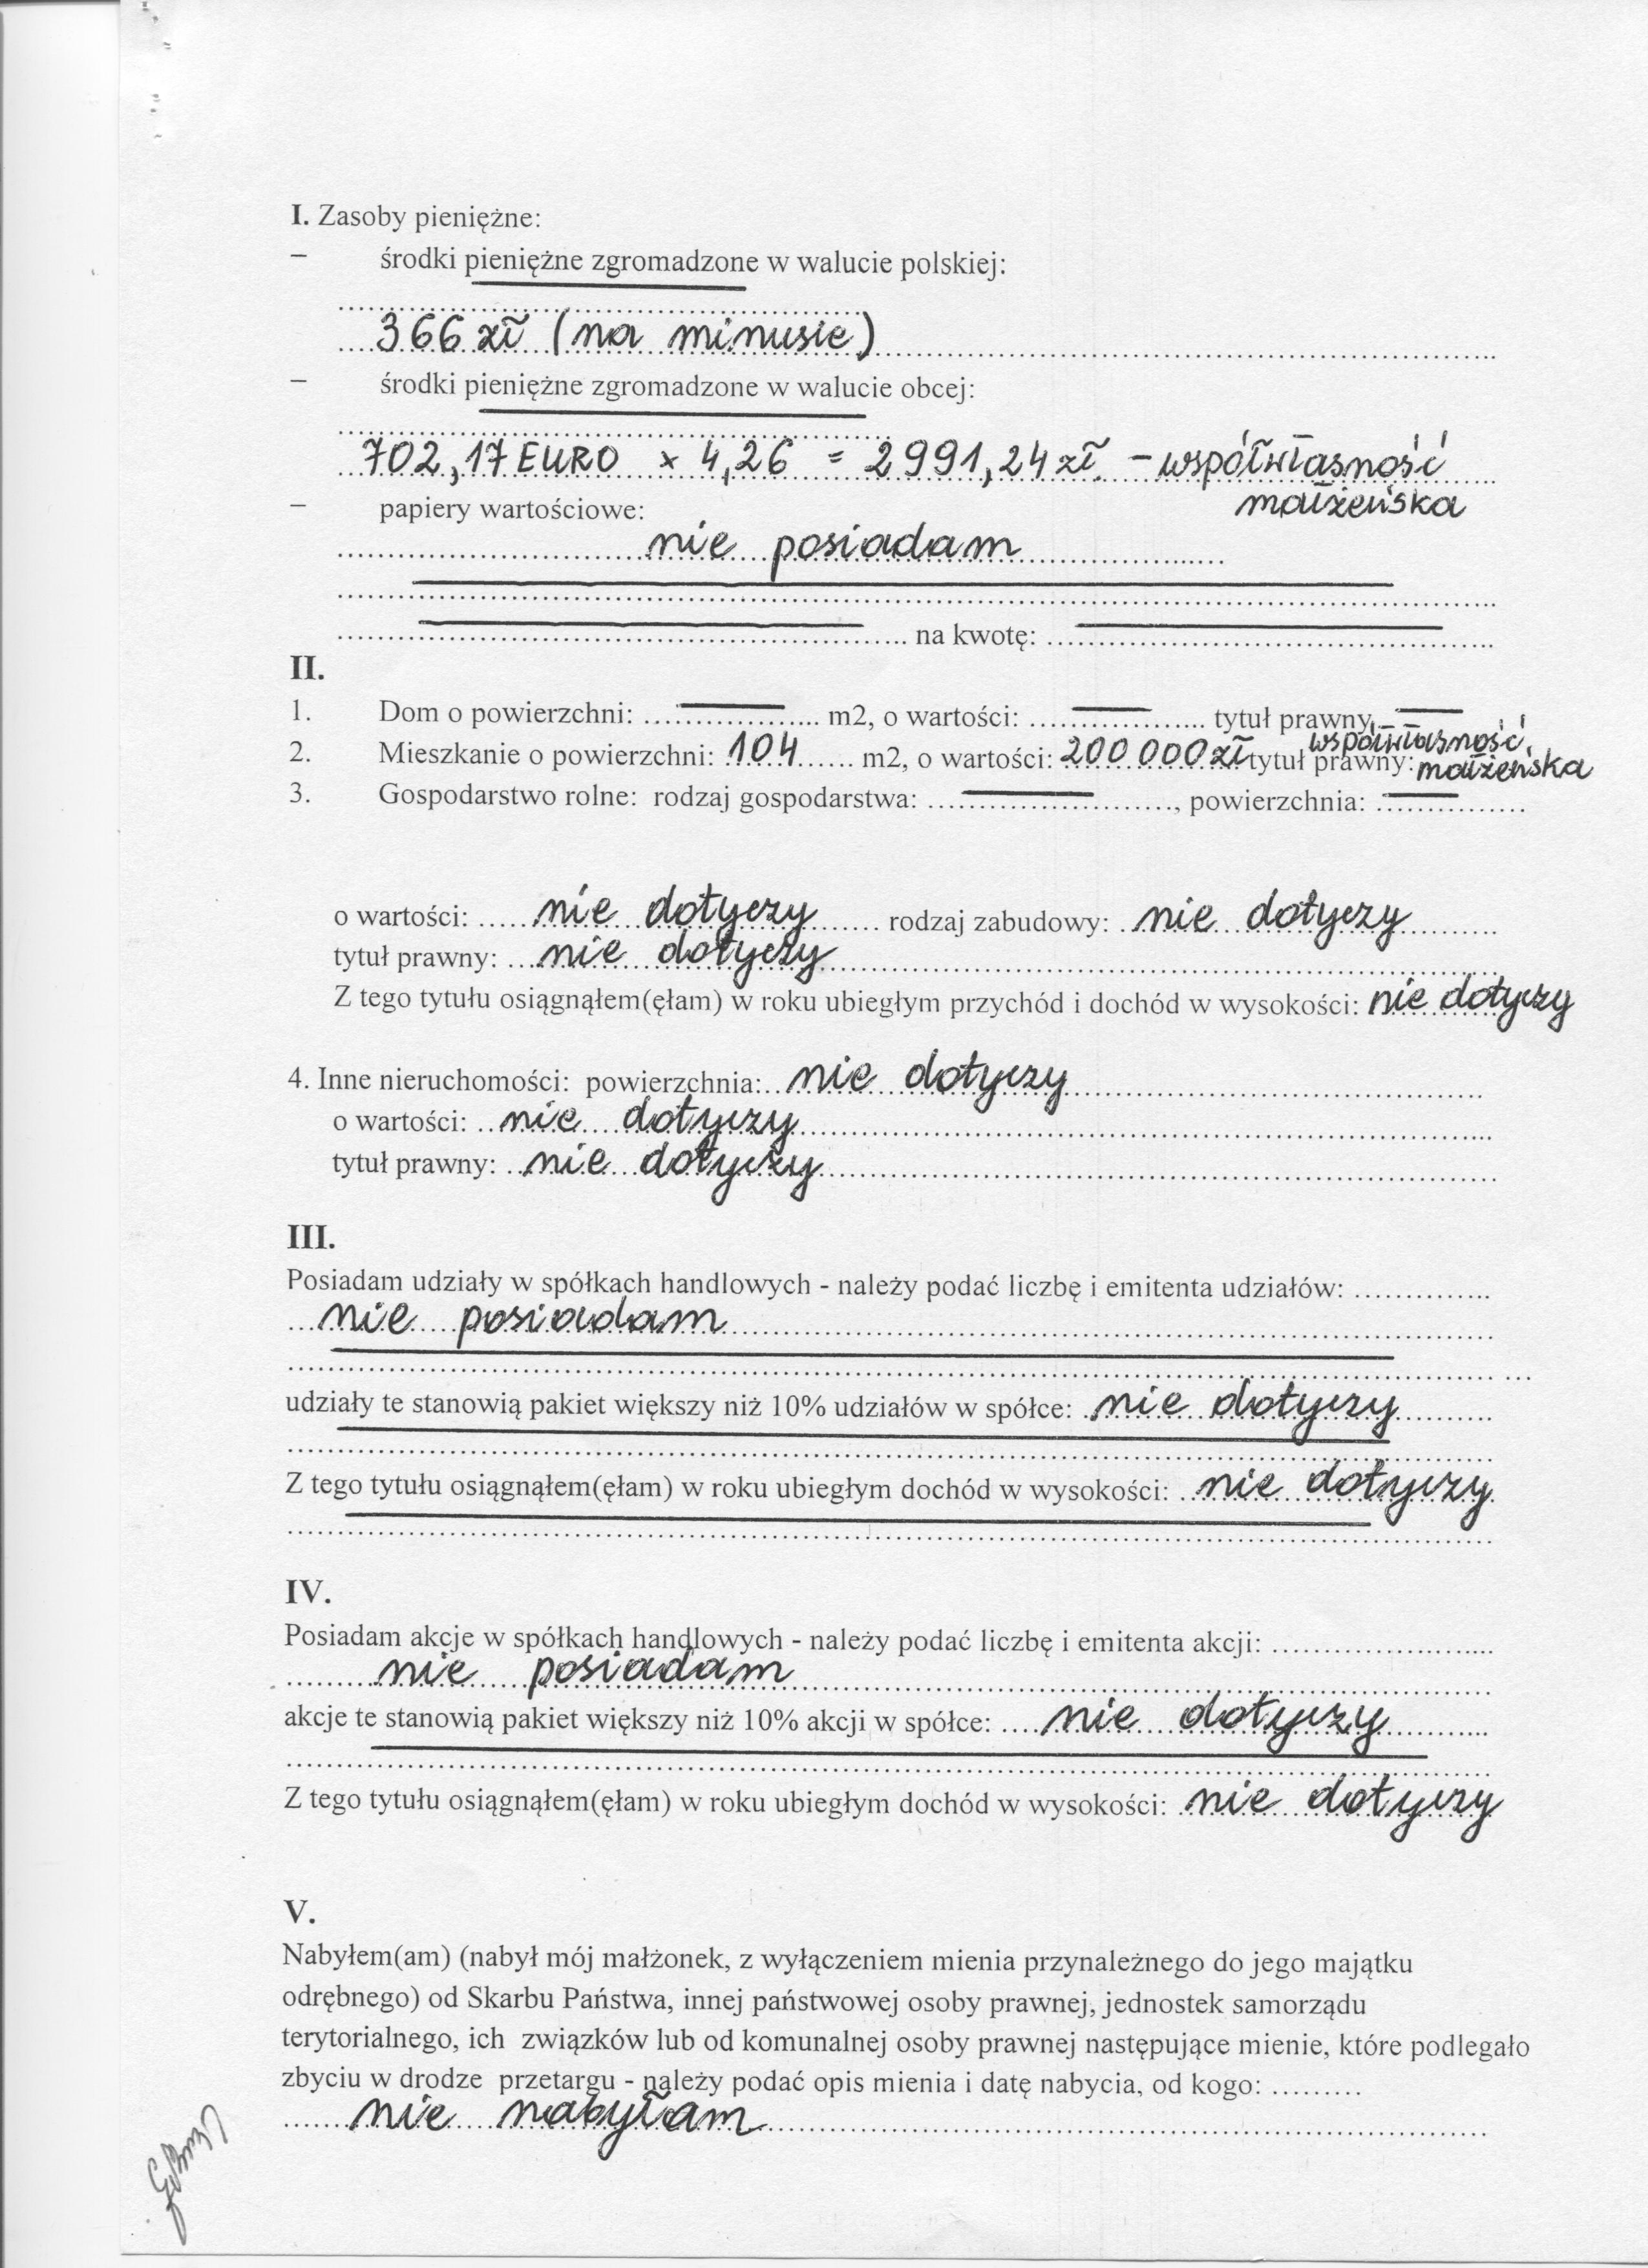 I. Zasoby pieniężne:
– środki pieniężne zgromadzone w walucie polskiej:
366 zł (na minusie)
– środki pieniężne zgromadzone w walucie obcej:
702,17 EURO x 4,26 = 2991,24 zł. – współwłasność
małżeńska
– papiery wartościowe:
nie posiadam
na kwotę:
II.
1. Dom o powierzchni: m2, o wartości: tytuł prawny:
2. Mieszkanie o powierzchni: 104 m2, o wartości: 200 000 zł tytuł prawny: współwłasność małżeńska
3. Gospodarstwo rolne: rodzaj gospodarstwa: , powierzchnia:
o wartości: nie dotyczy rodzaj zabudowy: nie dotyczy
tytuł prawny: nie dotyczy
Z tego tytułu osiągnąłem(ęłam) w roku ubiegłym przychód i dochód w wysokości: nie dotyczy
4. Inne nieruchomości: powierzchnia: nie dotyczy
o wartości: nie dotyczy
tytuł prawny: nie dotyczy
III.
Posiadam udziały w spółkach handlowych - należy podać liczbę i emitenta udziałów:
nie posiadam
udziały te stanowią pakiet większy niż 10% udziałów w spółce: nie dotyczy
Z tego tytułu osiągnąłem(ęłam) w roku ubiegłym dochód w wysokości: nie dotyczy
IV.
Posiadam akcje w spółkach handlowych - należy podać liczbę i emitenta akcji:
nie posiadam
akcje te stanowią pakiet większy niż 10% akcji w spółce: nie dotyczy
Z tego tytułu osiągnąłem(ęłam) w roku ubiegłym dochód w wysokości: nie dotyczy
V.
Nabyłem(am) (nabył mój małżonek, z wyłączeniem mienia przynależnego do jego majątku
odrębnego) od Skarbu Państwa, innej państwowej osoby prawnej, jednostek samorządu
terytorialnego, ich związków lub od komunalnej osoby prawnej następujące mienie, które podlegało
zbyciu w drodze przetargu - należy podać opis mienia i datę nabycia, od kogo:
nie nabyłam